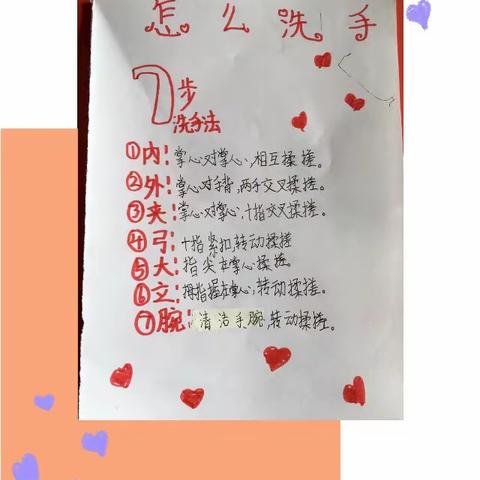 怎么洗手
7步
洗手法
①内:掌心对掌心,相互揉搓。
②外:掌心对手背,两手交叉揉搓。
③夹:掌心对掌心,十指交叉揉搓。
④弓:十指紧扣,转动揉搓
⑤大:指尖在掌心揉搓。
⑥立:拇指握在掌心,转动揉搓。
⑦腕:清洁手腕,转动揉搓。